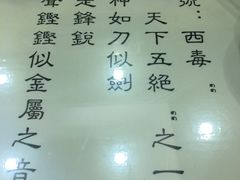 號：西毒
天下五絕之一
神如刀似劍
是鋒銳
聲鏗鏗似金屬之音